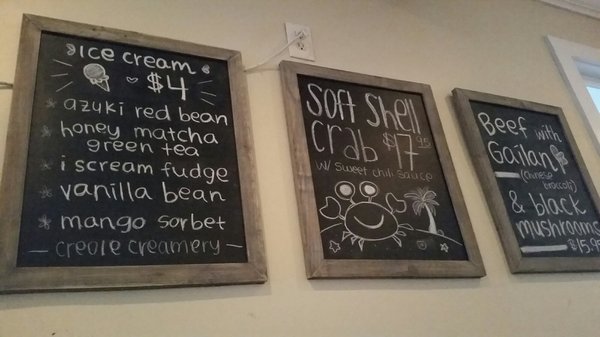 ice cream
$4
azuki red bean
honey matcha
green tea
i scream fudge
vanilla bean
mango sorbet
— creole creamery —
Soft Shell
Crab $17.95
w/ sweet chili sauce
Beef with
Gailan
(chinese
broccoli)
& black
mushrooms
$15.95